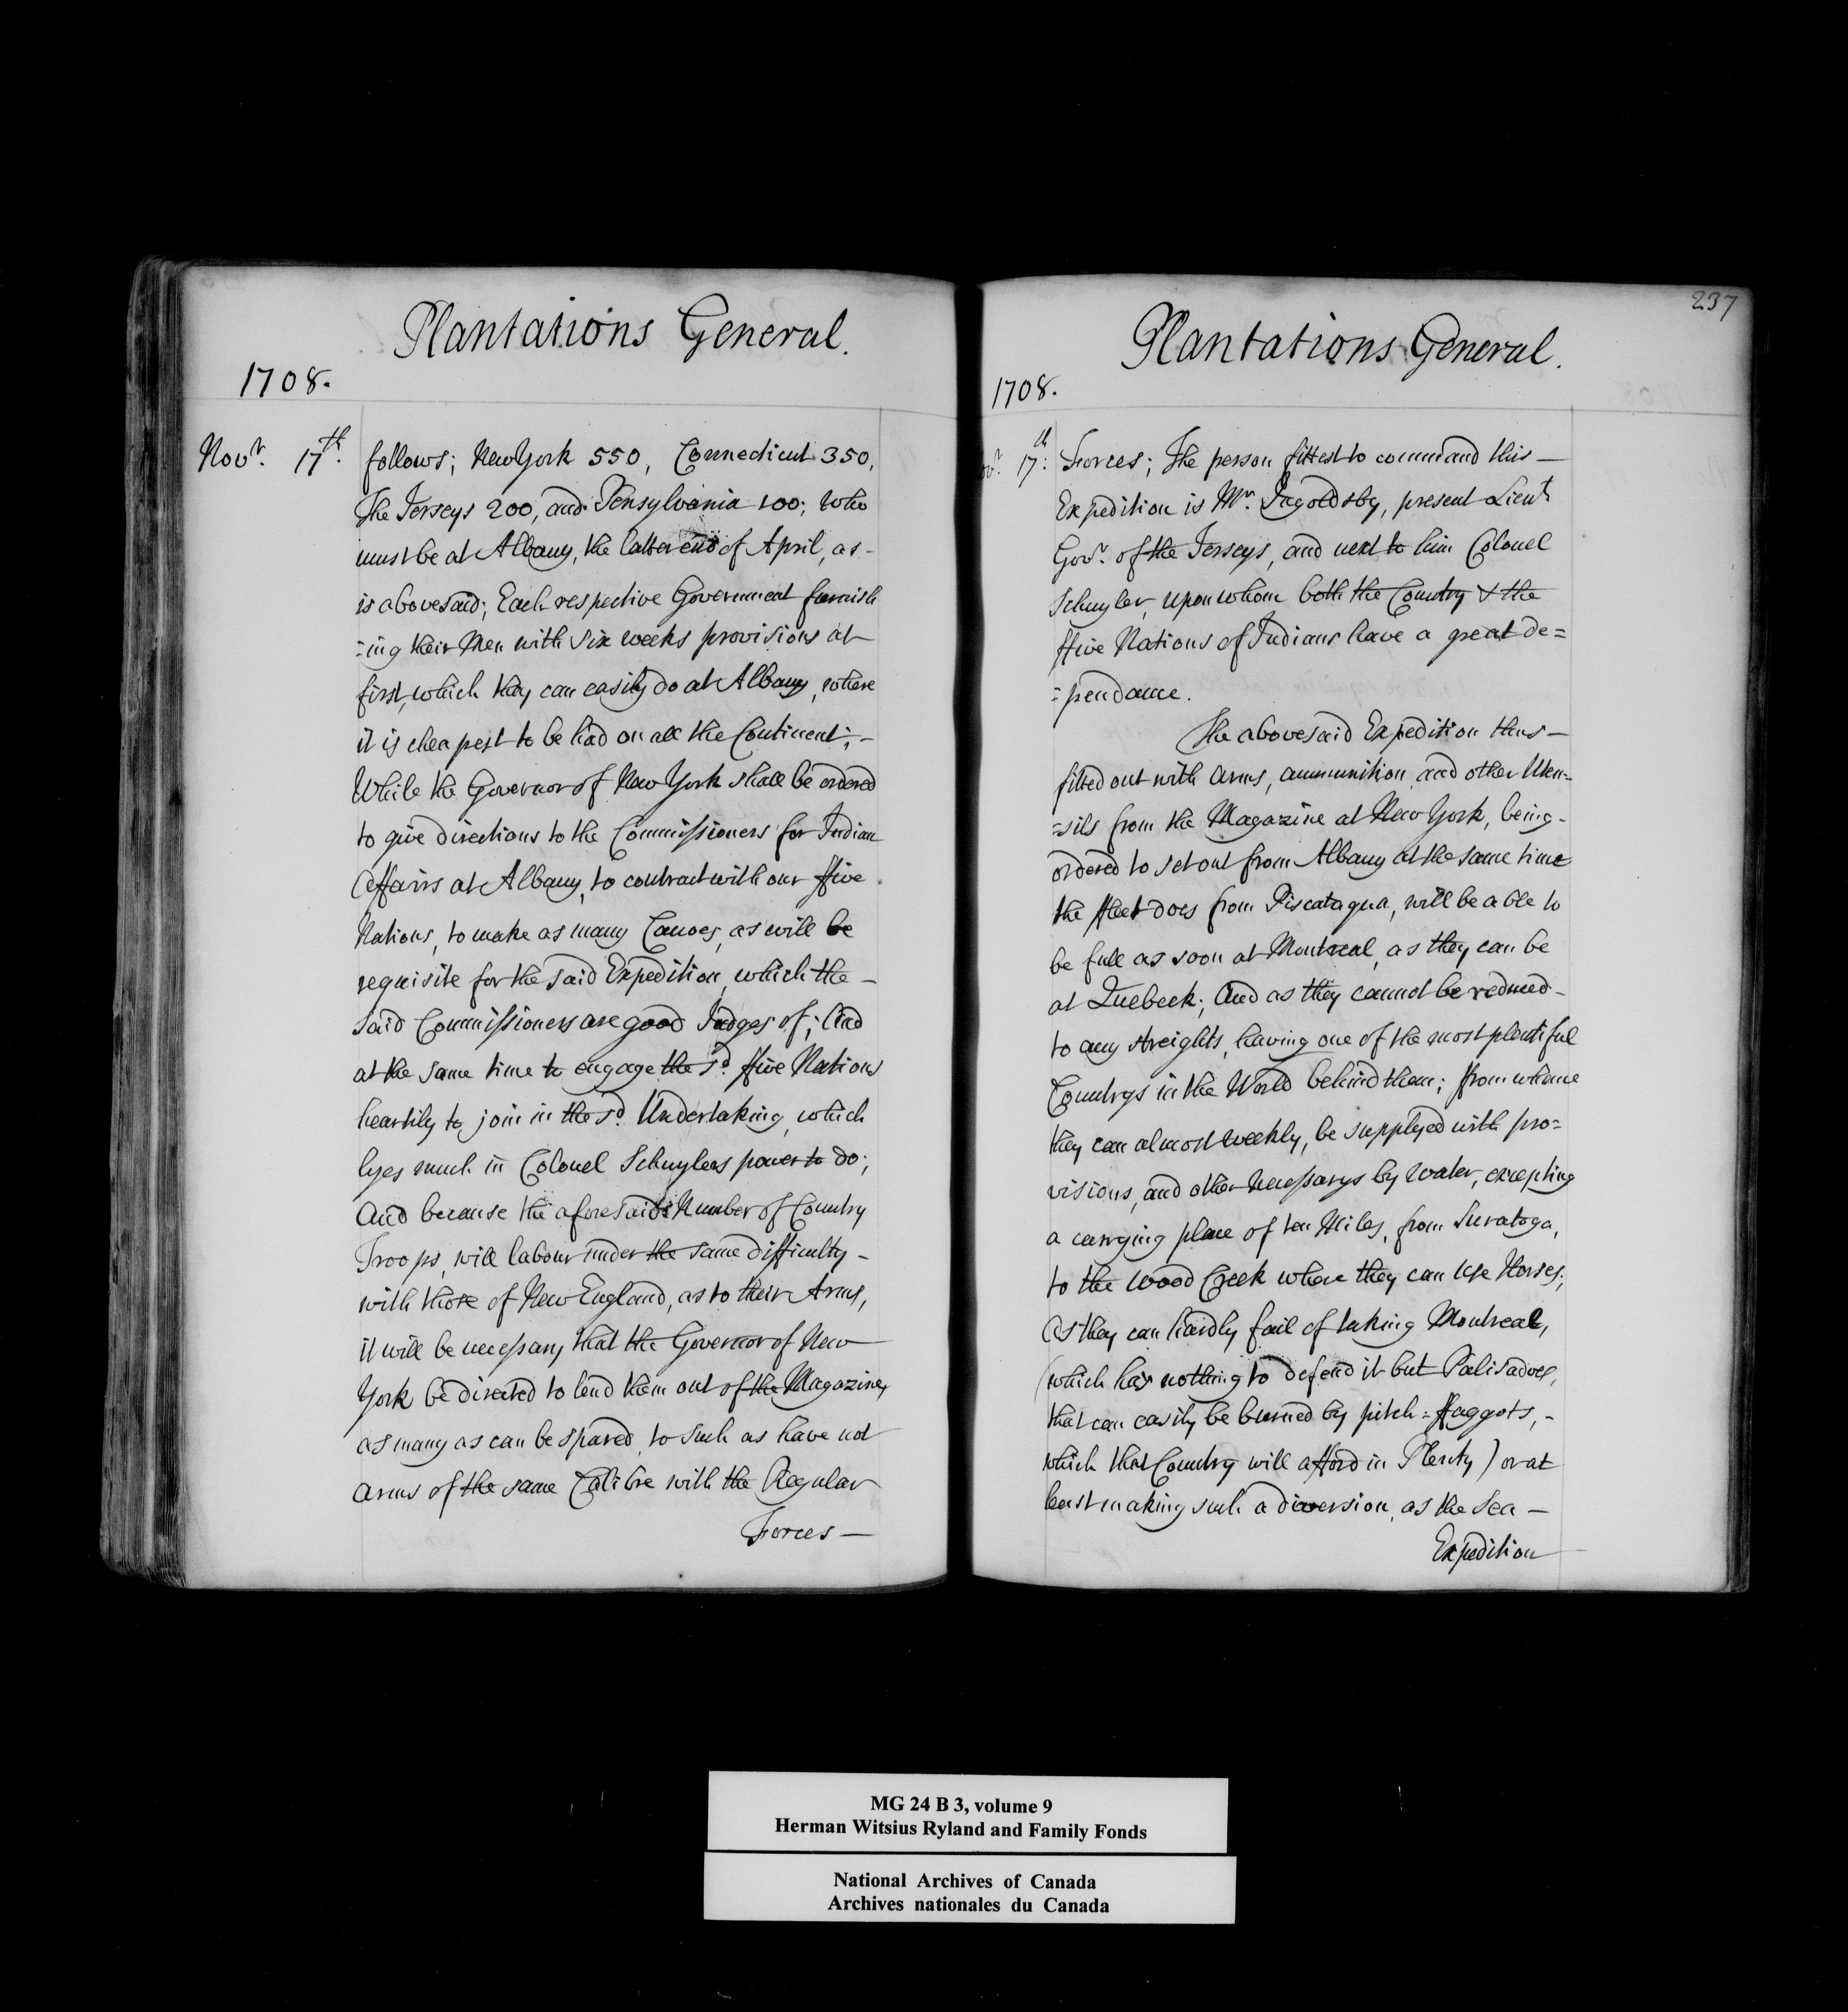 Plantations General.
1708.
Novr. 17th. follows; New York 550, Connecticut 350,
The Jerseys 200, and Pensylvania 100; who
must be at Albany, the latter end of April, as -
is abovesaid; Each respective Government furnish
=ing their Men with six weeks provisions at
first, which they can easily do at Albany, where
it is cheapest to be had on all the Continent; -
While the Governor of New York shall be ordered
to give directions to the Commissioners for Indian
Affairs at Albany, to contract with our ffive
Nations, to make as many Canoes, as will be
requisite for the said Expedition, which the -
said Commissioners are good Judges of; And
at the same time to engage the sd. ffive Nations
heartily to join in the sd. Undertaking, which
lyes much in Colonel Schuylers power to do;
And because the aforesaid Number of Country
Troops, will labour under the same difficulty -
with those of New England, as to their Arms,
it will be necessary that the Governor of New
York be directed to lend them out of the Magazine,
as many as can be spared, to such as have not
arms of the same Calibre with the Regular
Forces —
237
Plantations General.
1708.
ovr. 17th: Forces; The person fittest to command this —
Expedition is Mr. Ingoldsby, present Lieut
Govr. of the Jerseys, and next to him Colonel
Schuyler, upon whom both the Country & the
ffive Nations of Indians have a great de=
=pendance.
The abovesaid Expedition thus —
fitted out with arms, ammunition and other Uten=
=sils from the Magazine at New York, being -
ordered to set out from Albany at the same time
the ffleet does from Piscataqua, will be able to
be full as soon at Montreal, as they can be
at Quebeck; And as they cannot be reduced -
to any streights, having one of the most plentiful
Countrys in the World behind them; ffrom whence
they can almost weekly, be supplyed with pro=
visions, and other Necessarys by water, excepting
a carrying place of ten Miles, from Suratoga,
to the Wood Creek where they can use Horses;
As they can hardly fail of taking Montreal,
(which has nothing to defend it but Palisadoes,
that can easily be burned by pitch = ffaggots, -
which that Country will afford in Plenty) or at
least making such a diversion, as the Sea —
Expedition
MG 24 B 3, volume 9
Herman Witsius Ryland and Family Fonds
National Archives of Canada
Archives nationales du Canada